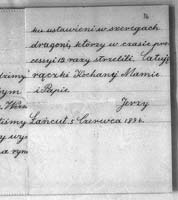 ku ustawieni w szeregach
dragoni, którzy w czasie pro-
cesyi 12 razy strzelili. Całuję
rączki Kochanej Mamie
i Papie
Jerzy
Łańcut 5 Czerwca